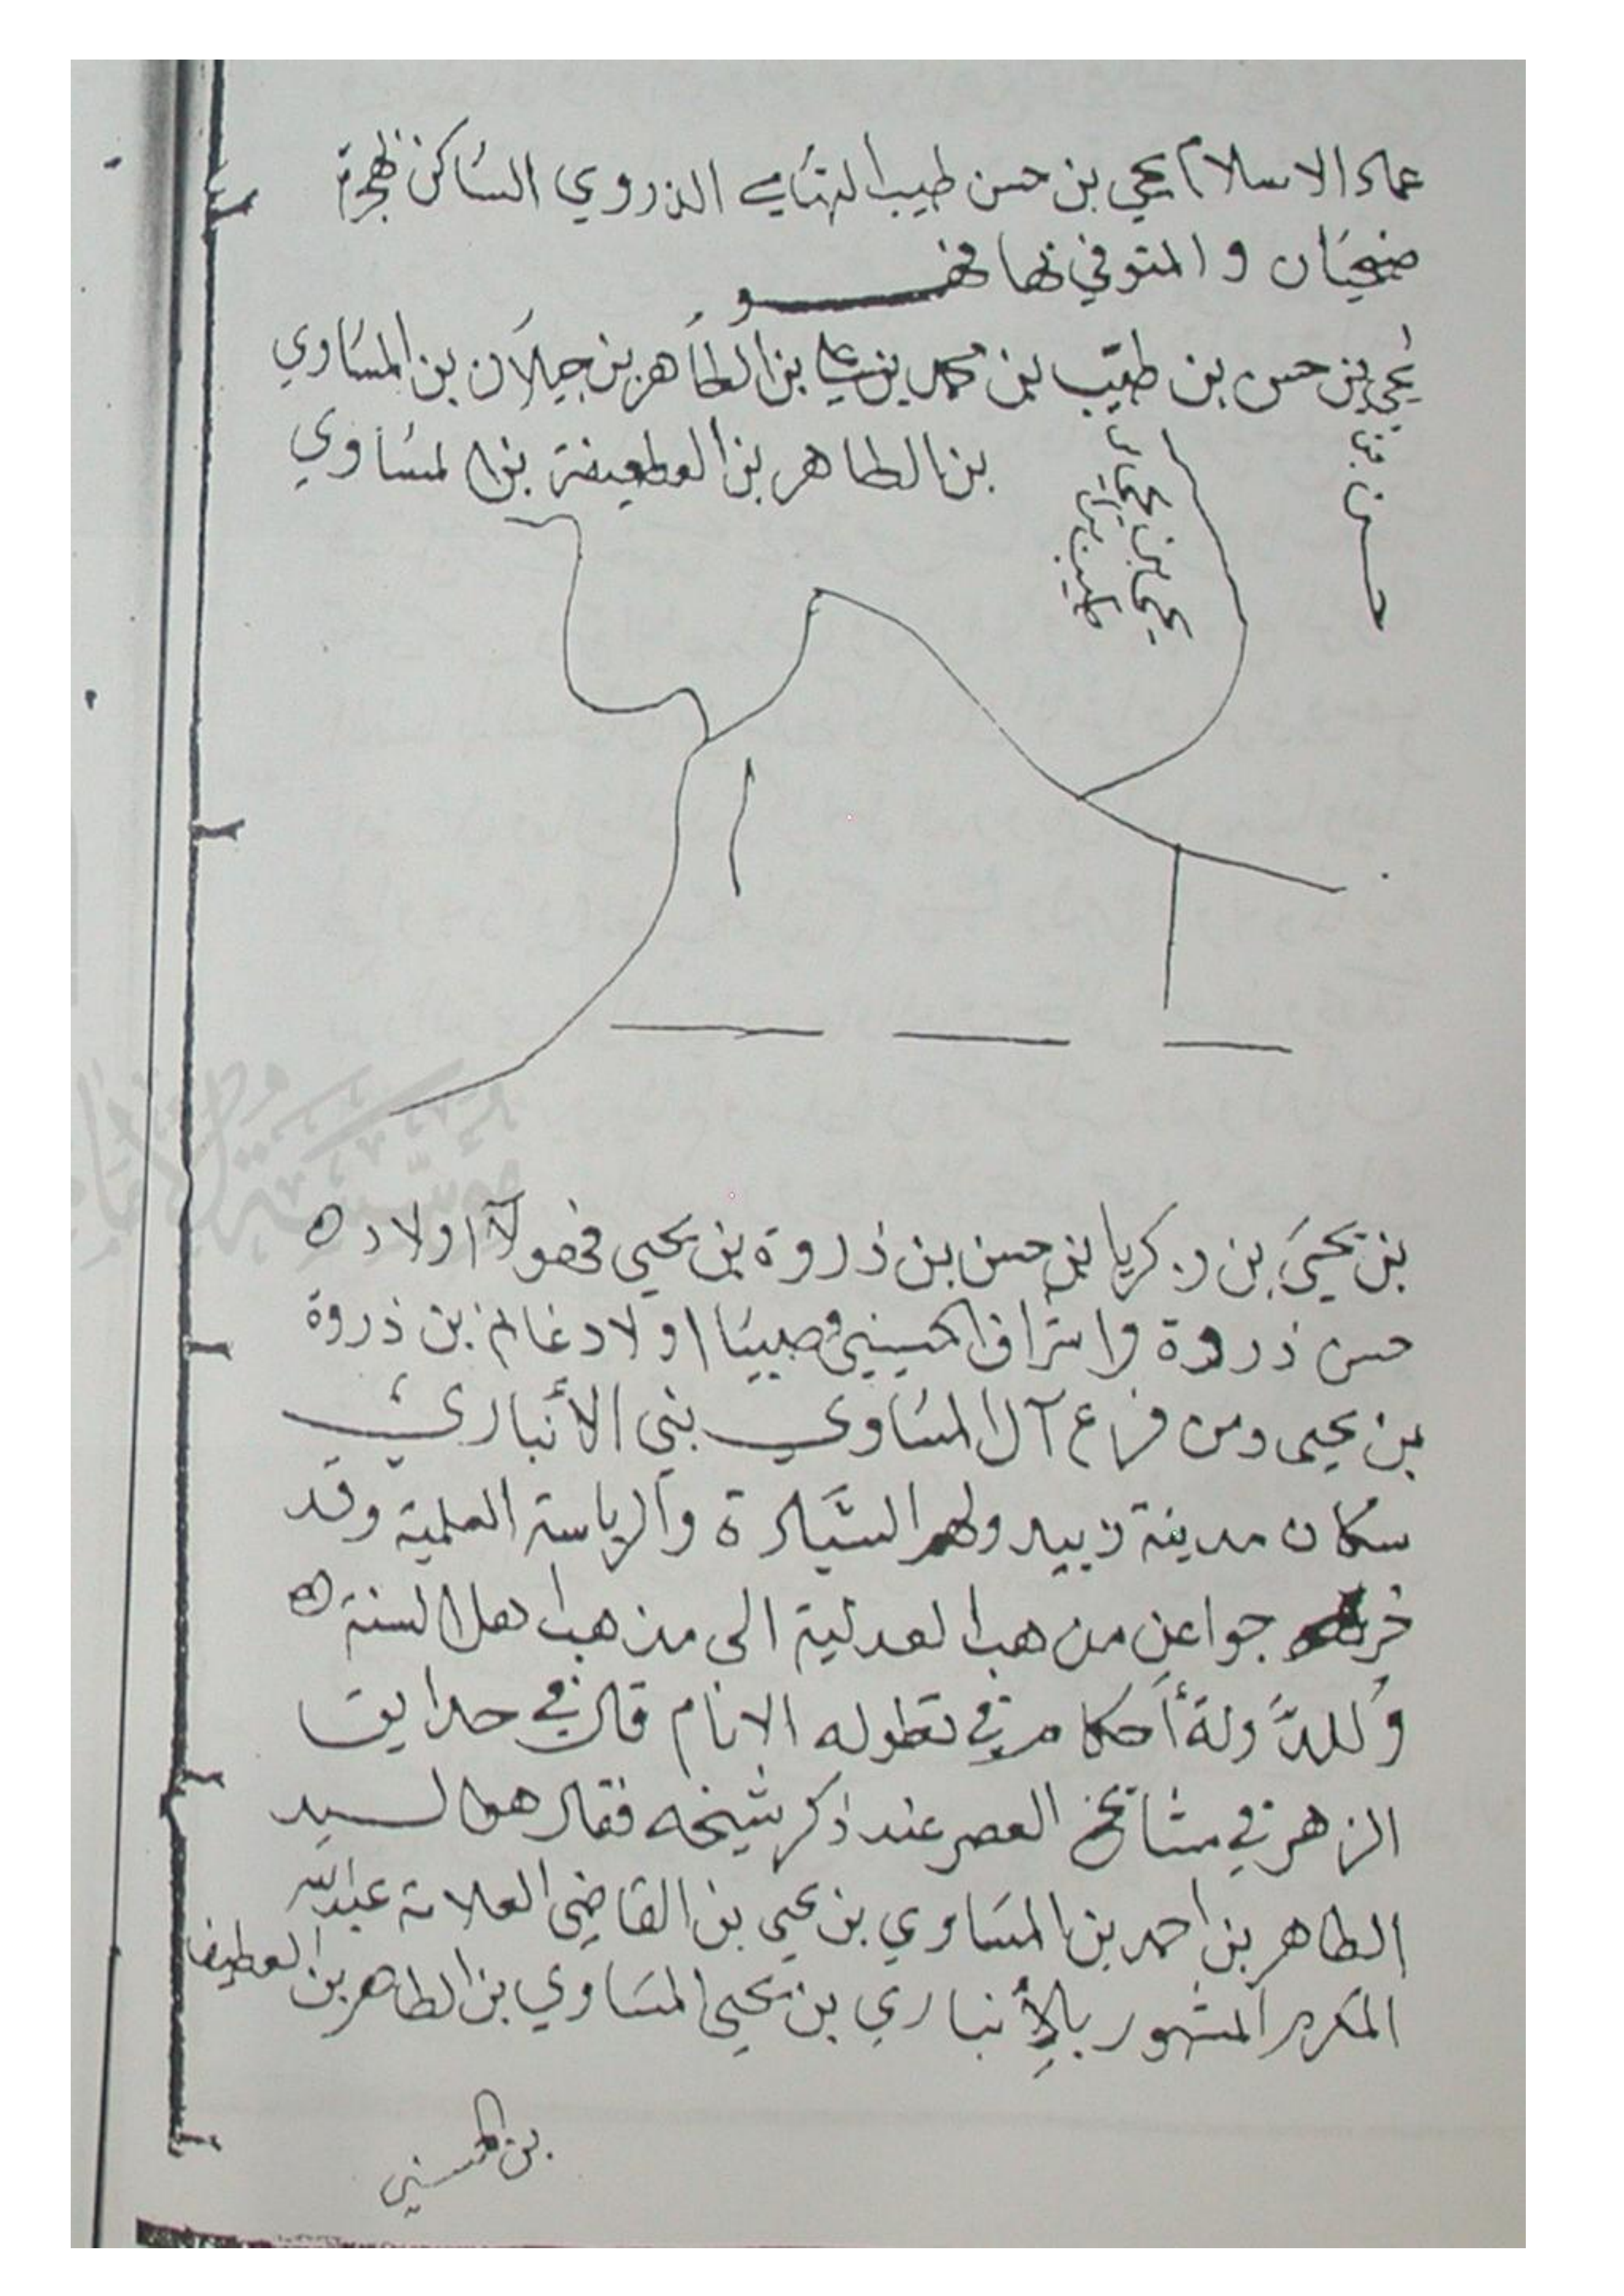 عماد الاسلام يحيى بن حسن طيب التهامي الذروي الساكن هجرة
ضحيان والمتوفي بها فهو
يحيى بن حسن بن طيب بن محمد بن علي بن الطاهر بن جيلان بن المساوي
بن الطاهر بن العطيفة بن المساوي
حسن
يحيى بن
طيب
بن يحيى بن زكريا بن حسن بن ذروة بن يحيى فهولآ اولاد
حسن ذروة واشراف الحسيني وصبيا اولاد غانم بن ذروة
بن يحيى ومن فرع آل المساوي بني الأنباري
سكان مدينة زبيد ولهم السيادة والرياسة العلمية وقد
خرجوا عن مذهب العدلية الى مذهب اهل السنة
وللدولة أحكام في تطوله الانام قال في حدايق
الزهر في مشايخ العصر عند ذكر شيخه فقال هو السيد
الطاهر بن احمد بن المساوي بن يحيى بن القاضي العلامة عبدالله
المكرم المشهور بالأنباري بن يحيى المساوي بن الطاهر بن العطيف
بن الحسني